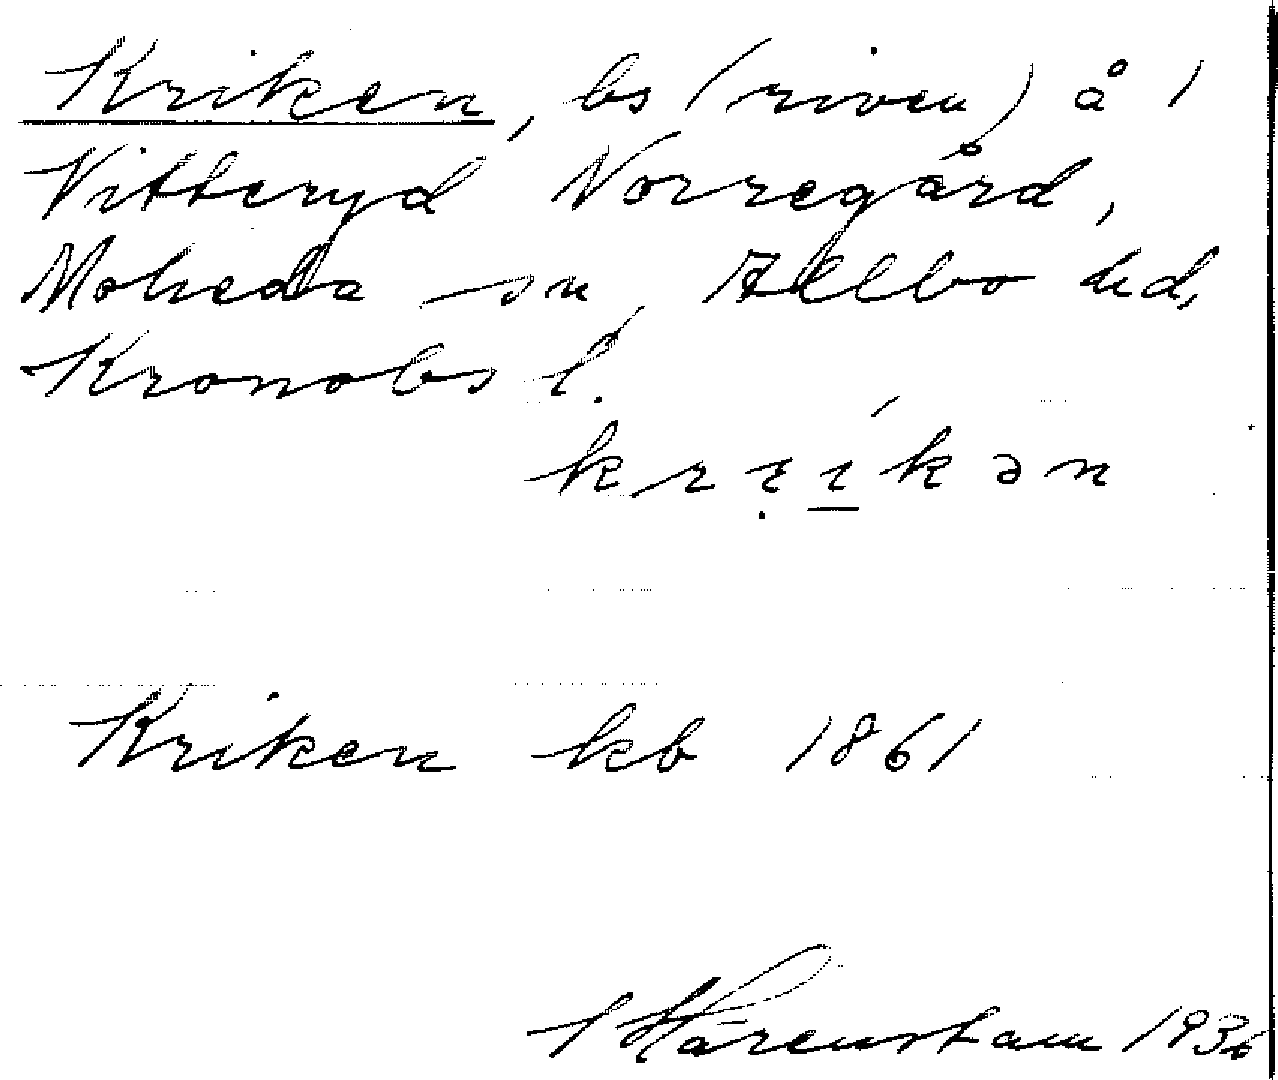 Kriken, bs (riven) å 1
Vitteryd Norregård,
Moheda sn, Allbo hd,
Kronobs l.
krıíkən
Kriken kb 1861
Härenstam 1936